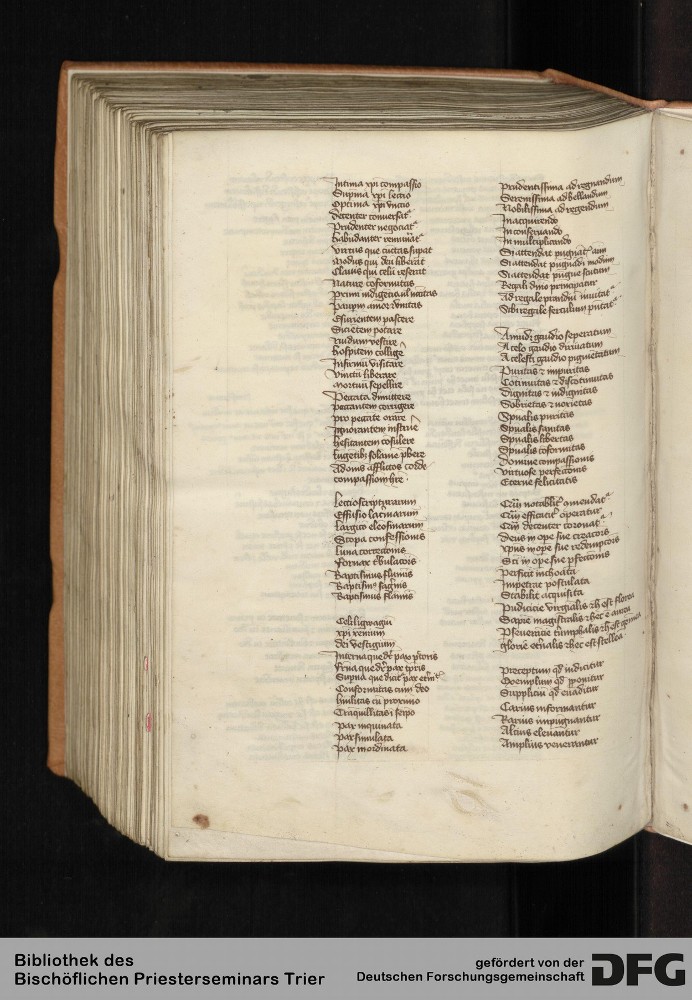 Intima xpi compassio
Supma xpi lectio
Optima xpi vnctio
decenter conversat
Prudenter negociat
habundanter remunat
Virtus que cuncta supat
Modus qui deu liberat
Clauis qui celu reserat
Nature coformitas
Prim indigetis
amor vnitas
Esurientem pascere
Sicietem potare
Nudum vestire
hospitem collige
Infirmu visitare
Vinctu liberare
Mortuu sepellire
Peccata dimittere
peccantem corrigere
pro peccate orare
Ignorantem instrue
hesitantem cosulere
lugetibz solame pbere
Ad omis afflictos corde
compassiom hre
Lectio scripturarum
Effusio lacrimarum
Largitio elemosinarum
Scopa confessionis
Luna correctionis
Fornax tbulacois
Baptismus fluminis
Baptism saginis
Baptismus flaminis
Celi ligwagiu
xpi xenium
dei vestigium
Interna que dr pax pctoris
Etna que dr pax tpris
Supna que dicit pax etni
Conformitas cum deo
humilitas cu proximo
Tranquillitas i seipo
Pax inquinata
Pax simulata
Pax inordinata
Prudentissima ad regnandum
Serenissima ad bellandum
Nobilissima ad regendum
In acquirendo
In conservando
In multiplicando
Si attendat pugnat
Si attendat pugnadi modum
Si attendat pugne scutum
Regali dmo principatur
Ad regale prandiu inuitat
Sibi regale ferculum putat
A mudi gaudio seperatum
A celo gaudio diriuatum
A celesti gaudio pigmetatum
Puritas z impuritas
Cotinuitas z discotinuitas
Dignitas z indignitas
Sobrietas z
Spualis puritas
Spualis sanitas
Spualis libertas
Spualis coformitas
Domine compassionis
Virtuose perfectionis
Eterne felicitatis
Cum notabilit emendat
Cum efficacit operatur
Cum decenter coronat
Deus in ope sue creacois
xpus in ope sue redempcois
Scs in ope sue pfectonis
Perficit inchoata
Impetrat postulata
Stabilit acquisita
Pudicicie virginalis z h est florea
Sapie magistralis z hec e aurea
Pseuerancie triumphalis z h est gemea
glorie etnalis z hec est stellea
Preceptum qd indicitur
Exemplum qd pponitur
Suppliciu qd euaditur
Carius informantur
Rarius impugnantur
Alcius eleuantur
Amplius venerantur
Bibliothek des
Bischöflichen Priesterseminars Trier
gefördert von der
Deutschen Forschungsgemeinschaft
DFG